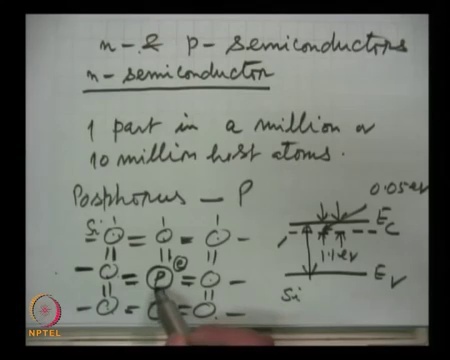 n- & p- semiconductors
n- semiconductor
1 part in a million or
10 million host atoms.
Posphorus - P
0.05 eV
Si
E_C
P
e
1.1 eV
Si
E_V
NPTEL